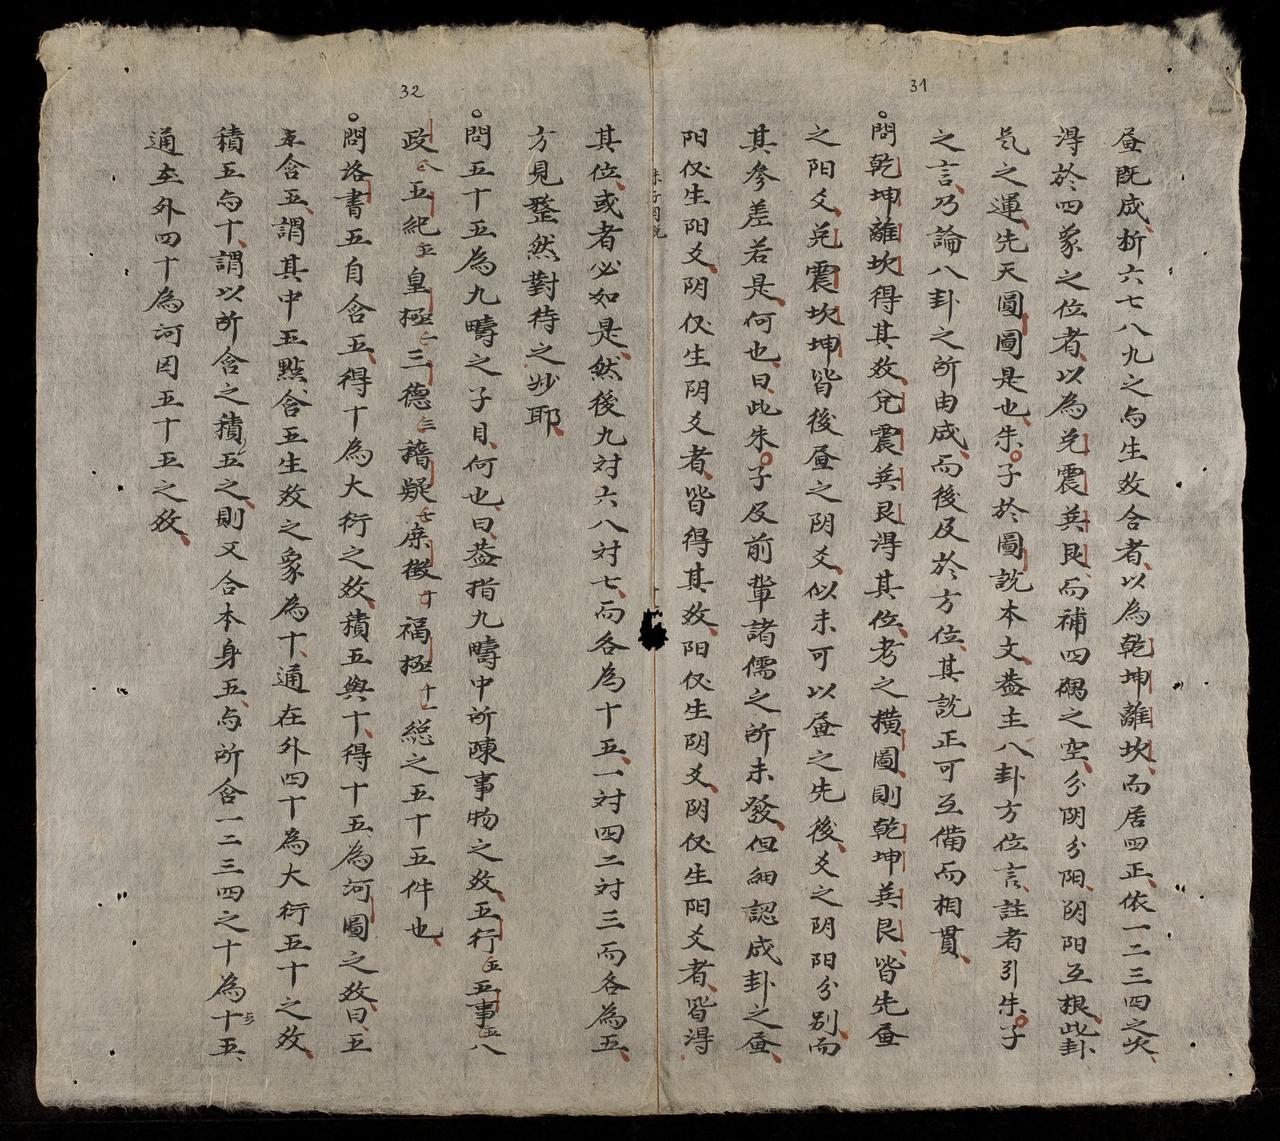 31
畫既成析六七八九之与生数合者以為乾坤離坎而居四正依一二三四之次
得於四象之位者以為兑震巽艮而補四隅之空分阴分阳阴阳互根此卦
氣之運先天圓圖是也朱子於圖説本文蓋主八卦方位言註者引朱子
之言乃論八卦之所由成而後及於方位其説正可互備而相貫
問乾坤離坎得其数兑震巽艮得其位考之横圖則乾坤巽艮皆先畫
之阳爻兑震坎坤皆後畫之阴爻似未可以畫之先後爻之阴阳分别而
其参差若是何也曰此朱子及前輩諸儒之所未發但細認成卦之畫
阳仪生阳爻阴仪生阴爻者皆得其数阳仪生阴爻阴仪生阳爻者皆得
其位或者必如是然後九对六八对七而各為十五一对四二对三而各為五
方見整然對待之妙耶
32
問五十五為九疇之子目何也曰蓋指九疇中所陳事物之数五行五五事五八
政八五紀五皇極一三德三稽疑七庶徵十福極十一総之五十五件也
問洛書五自含五得十為大衍之数積五與十得十五為河圖之数曰五
自含五謂其中五點含五生数之象為十通在外四十為大衍五十之数
積五与十謂以所含之積五之則又合本身五与所含一二三四之十為十五
通在外四十為河図五十五之数